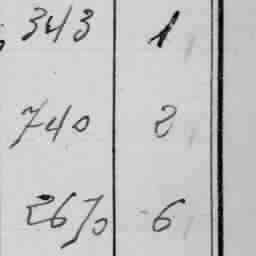 343 1
740 2
2670 6